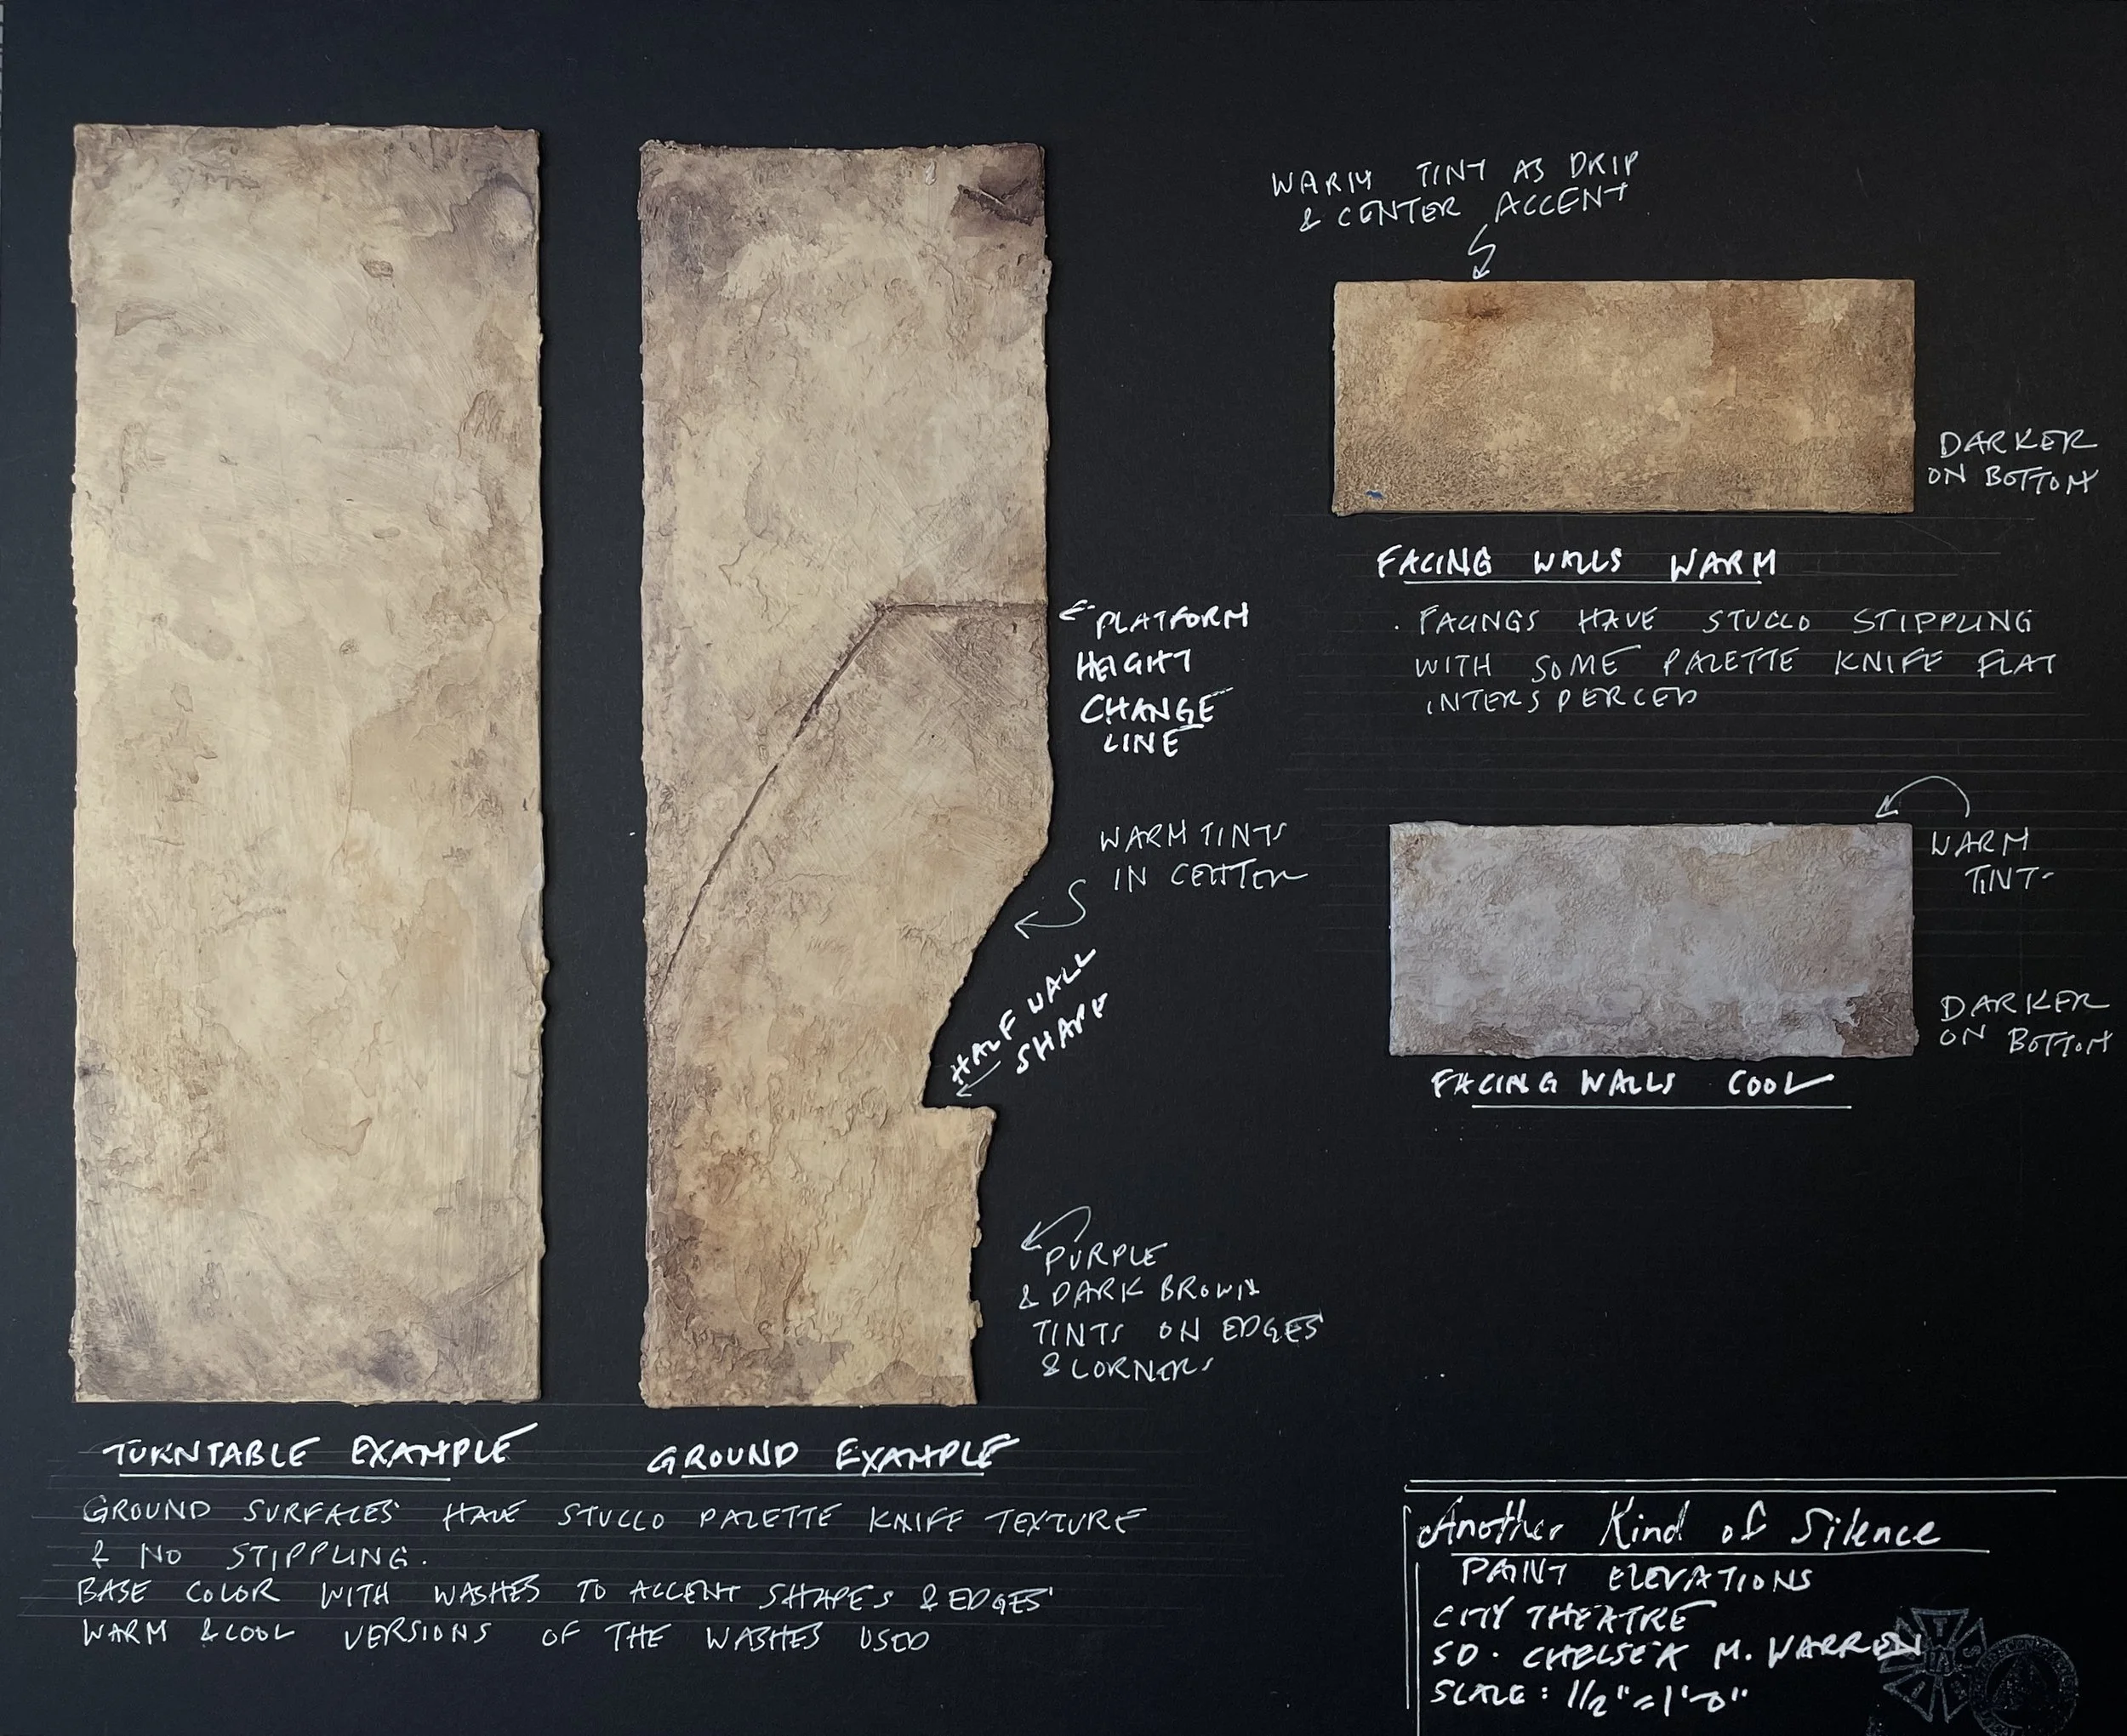 WARM TINT AS DRIP
& CENTER ACCENT
DARKER
ON BOTTOM
FACING WALLS WARM
· FACINGS HAVE STUCCO STIPPLING
WITH SOME PALETTE KNIFE FLAT
INTERSPERCED
PLATFORM
HEIGHT
CHANGE
LINE
WARM TINTS
IN CENTER
HALF WALL
SHAPE
WARM
TINT
DARKER
ON BOTTOM
FACING WALLS COOL
PURPLE
& DARK BROWN
TINTS ON EDGES
& CORNERS
TURNTABLE EXAMPLE
GROUND EXAMPLE
GROUND SURFACES HAVE STUCCO PALETTE KNIFE TEXTURE
& NO STIPPLING.
BASE COLOR WITH WASHES TO ACCENT SHAPES & EDGES
WARM & COOL VERSIONS OF THE WASHES USED
Another Kind of Silence
PAINT ELEVATIONS
CITY THEATRE
SD. CHELSEA M. WARREN
SCALE: 1/2" = 1'-0"